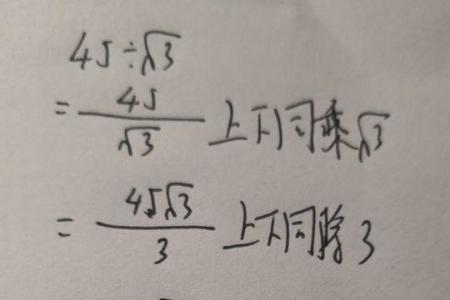 45÷√3
=45/√3 上下同乘√3
=45√3/3 上下同除3